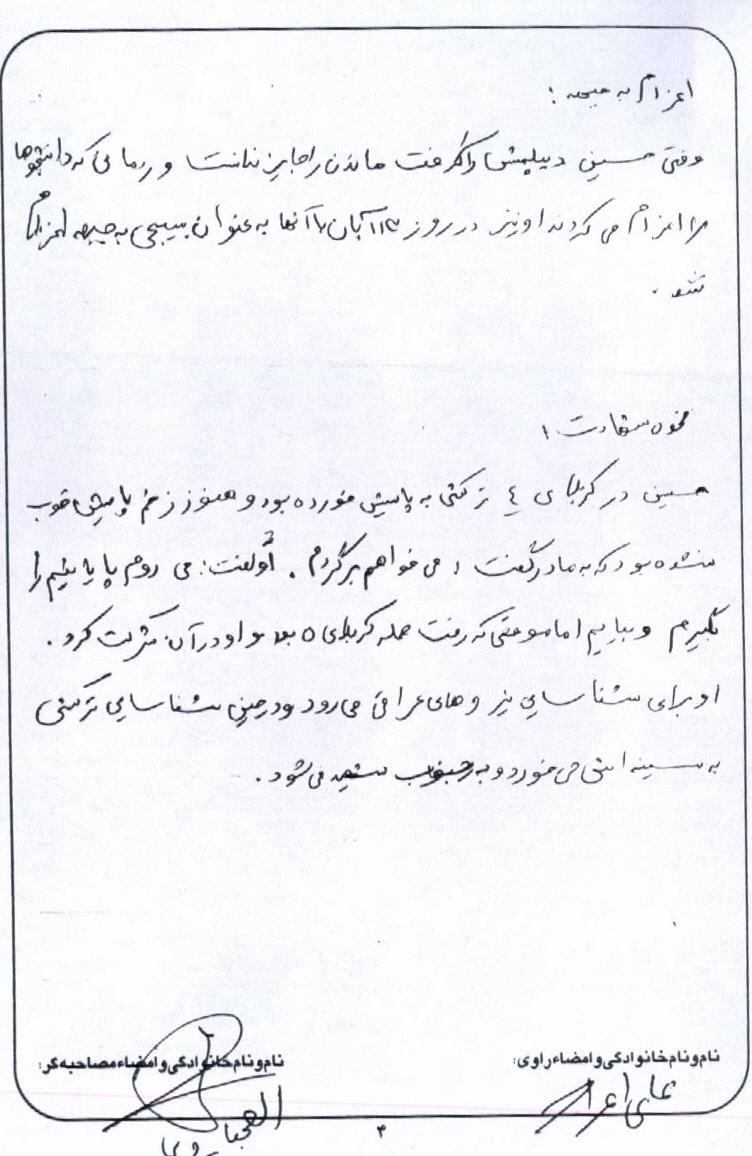 اعزام به جبهه :
وقتی حسین دیپلمش را گرفت ماندن را جایز ندانست و زمانی که دانشجوها
را اعزام می کردند او نیز در روز ۱۳ آبان با آنها به عنوان بسیجی به جبهه اعزام
شد .
نحوه شهادت :
حسین در کربلای ٤ ترکشی به پایش خورده بود و هنوز زخم پایش خوب
نشده بود که به مادر گفت : می خواهم برگردم . او گفت : می روم پایانیم را
بگیرم و بیایم اما موقعی که رفت حمله کربلای ۵ بود و او در آن شرکت کرد .
او برای شناسایی نیروهای عراقی می رود و در حین شناسایی ترکشی
به سینه اش می خورد و شهید می شود .
نام و نام خانوادگی و امضاء راوی:
نام و نام خانوادگی و امضاء مصاحبه گر:
۴